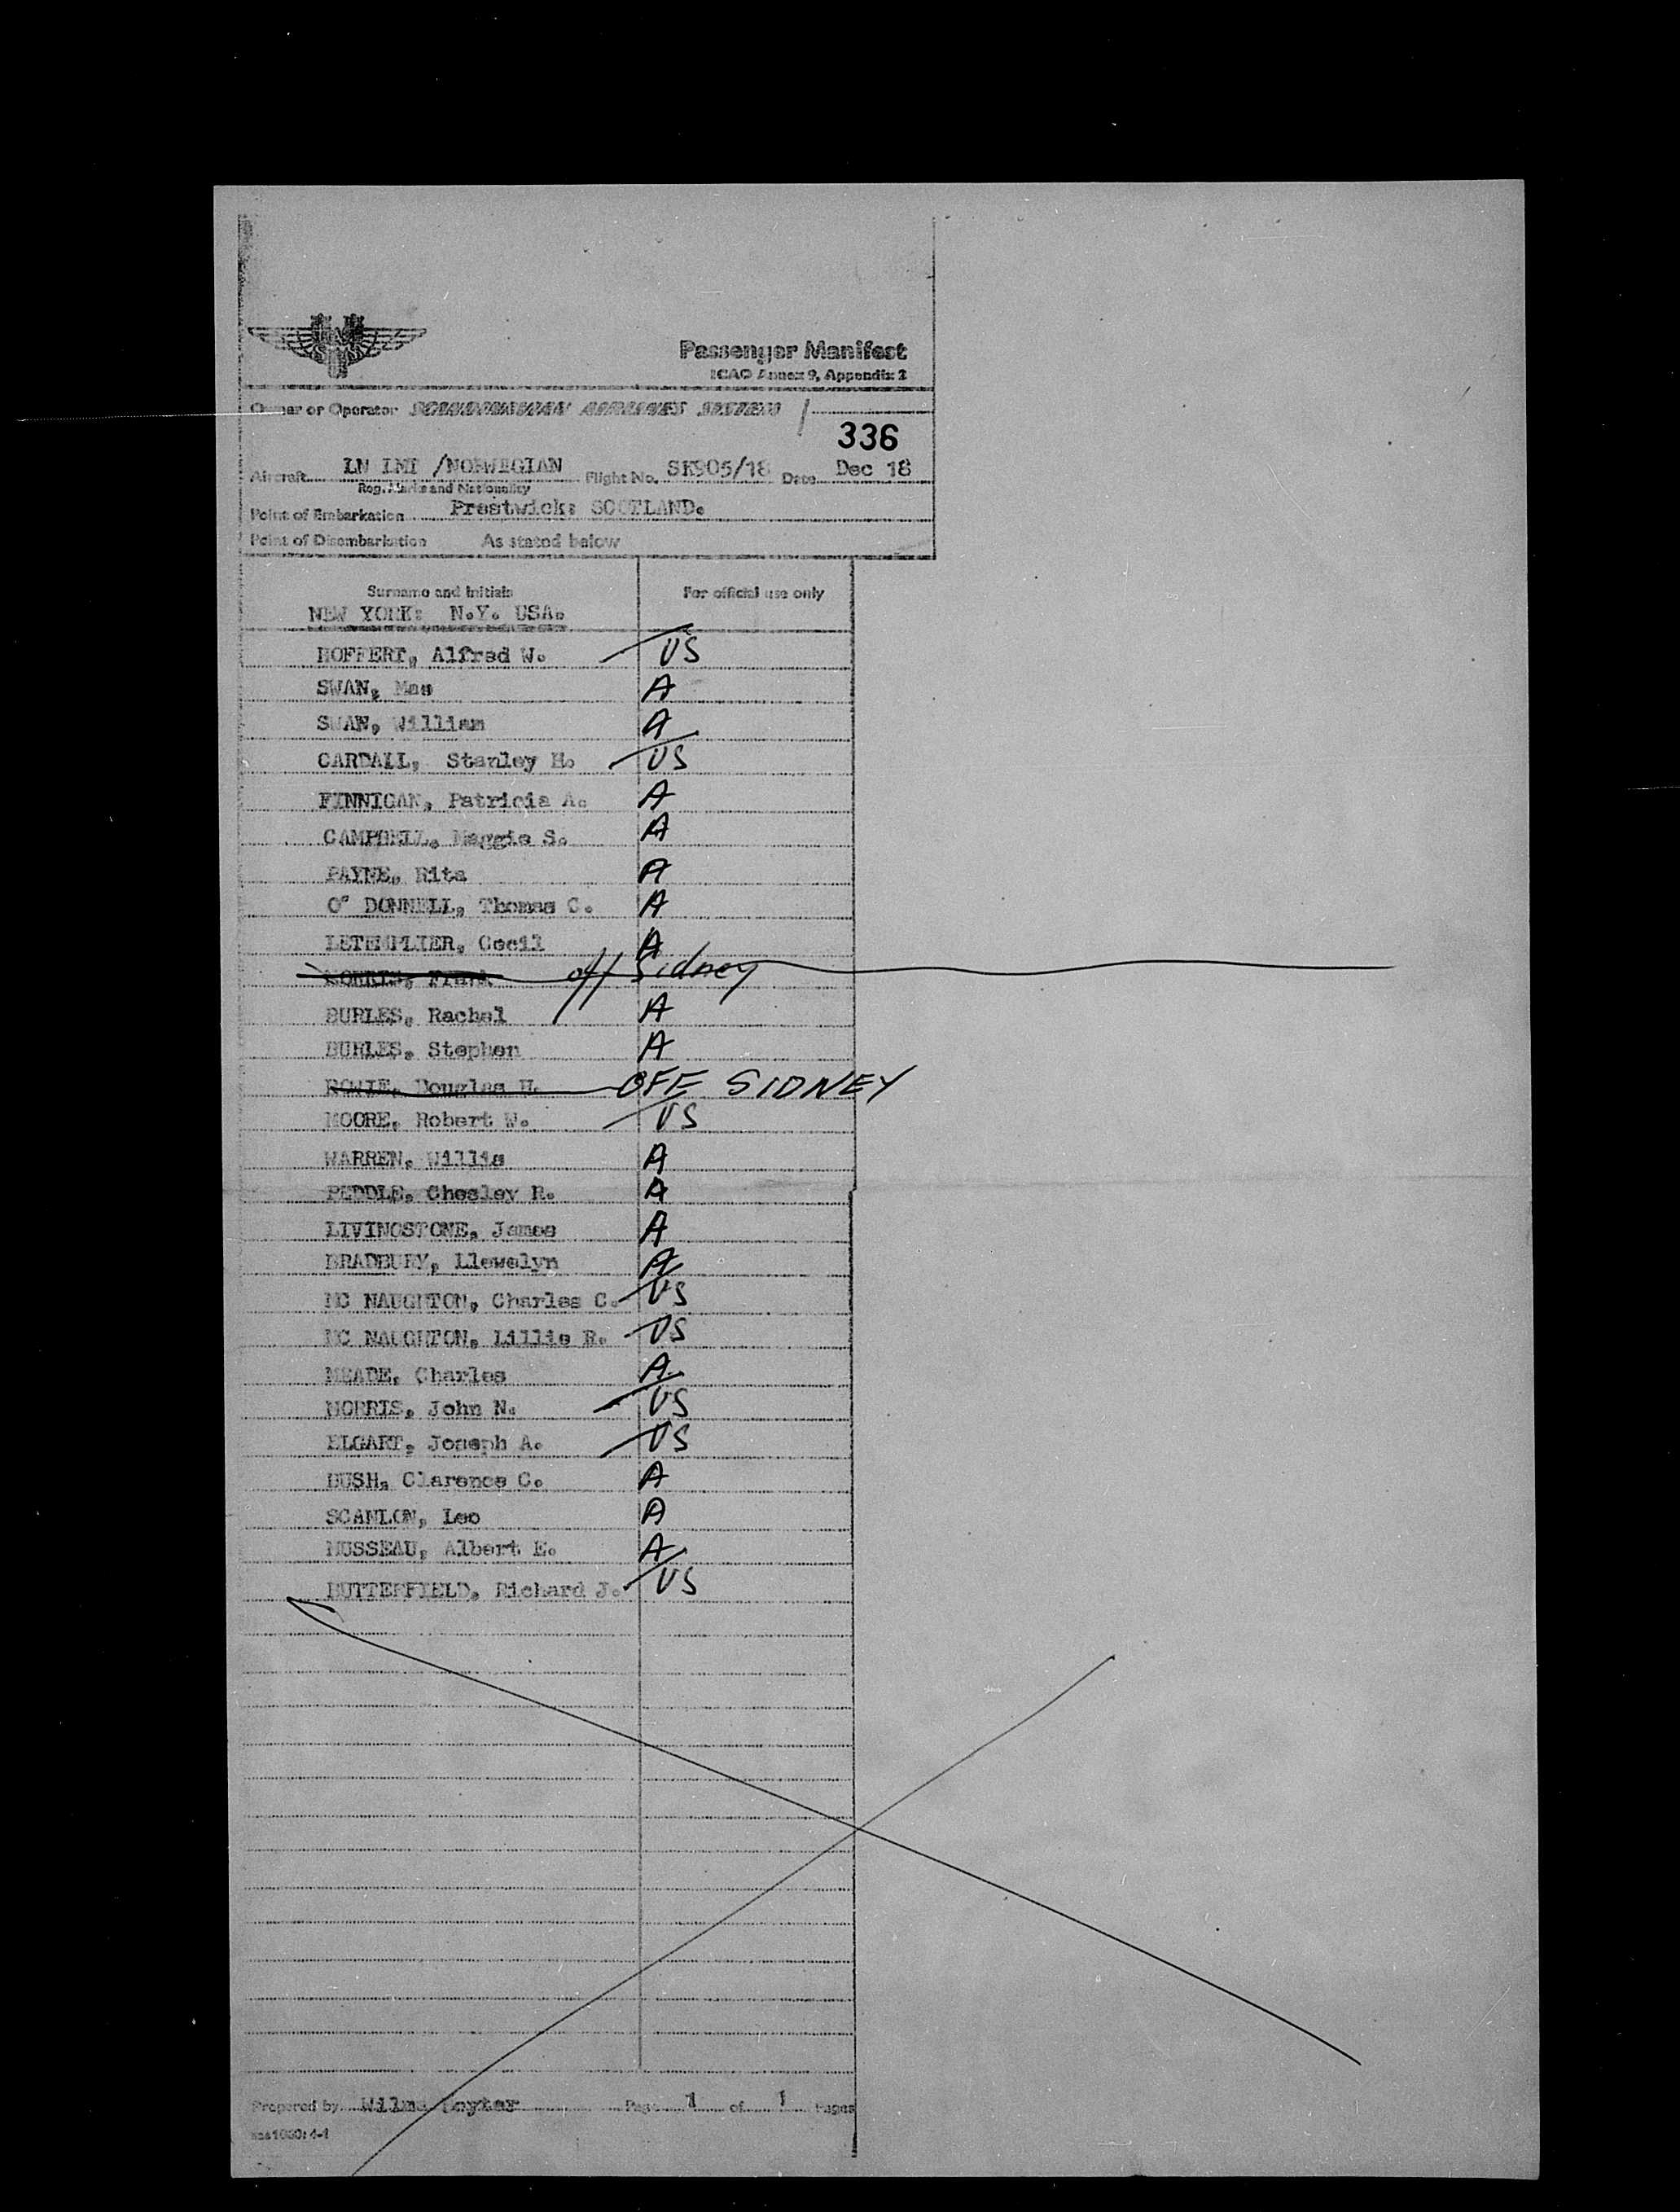 Passenger Manifest
ICAO Annex 9, Appendix 2
Owner or Operator SCANDINAVIAN AIRLINES SYSTEM
336
Aircraft LN LMT /NORWEGIAN Flight No. SK905/18 Date Dec 18
Reg. Marks and Nationality
Point of Embarkation Prestwick: SCOTLAND.
Point of Disembarkation As stated below
Surname and Initials For official use only
NEW YORK: N.Y. USA.
HOFFERT, Alfred W. US
SWAN, Mae A
SWAN, William A
CARDALL, Stanley H. US
FINNIGAN, Patricia A. A
CAMPBELL, Maggie S. A
PAYNE, Rita A
O" DONNELL, Thomas C. A
Cecil A
Frank off Sidney
BURLES, Rachel A
BURLES, Stephen A
Douglas H. OFF SIDNEY
MOORE, Robert W. US
WARREN, Willis A
PEDDLE, Chesley R. A
LIVINGSTONE, James A
BRADBURY, Llewelyn A
MC NAUGHTON, Charles C. US
MC NAUGHTON, Lillie R. US
MEADE, Charles A
MORRIS, John N. US
ELGART, Joseph A. US
BUSH, Clarence C. A
SCANLON, Leo A
MUSSEAU, Albert E. A
BUTTERFIELD, Richard J. US
Prepared by Page 1 of 1 Pages